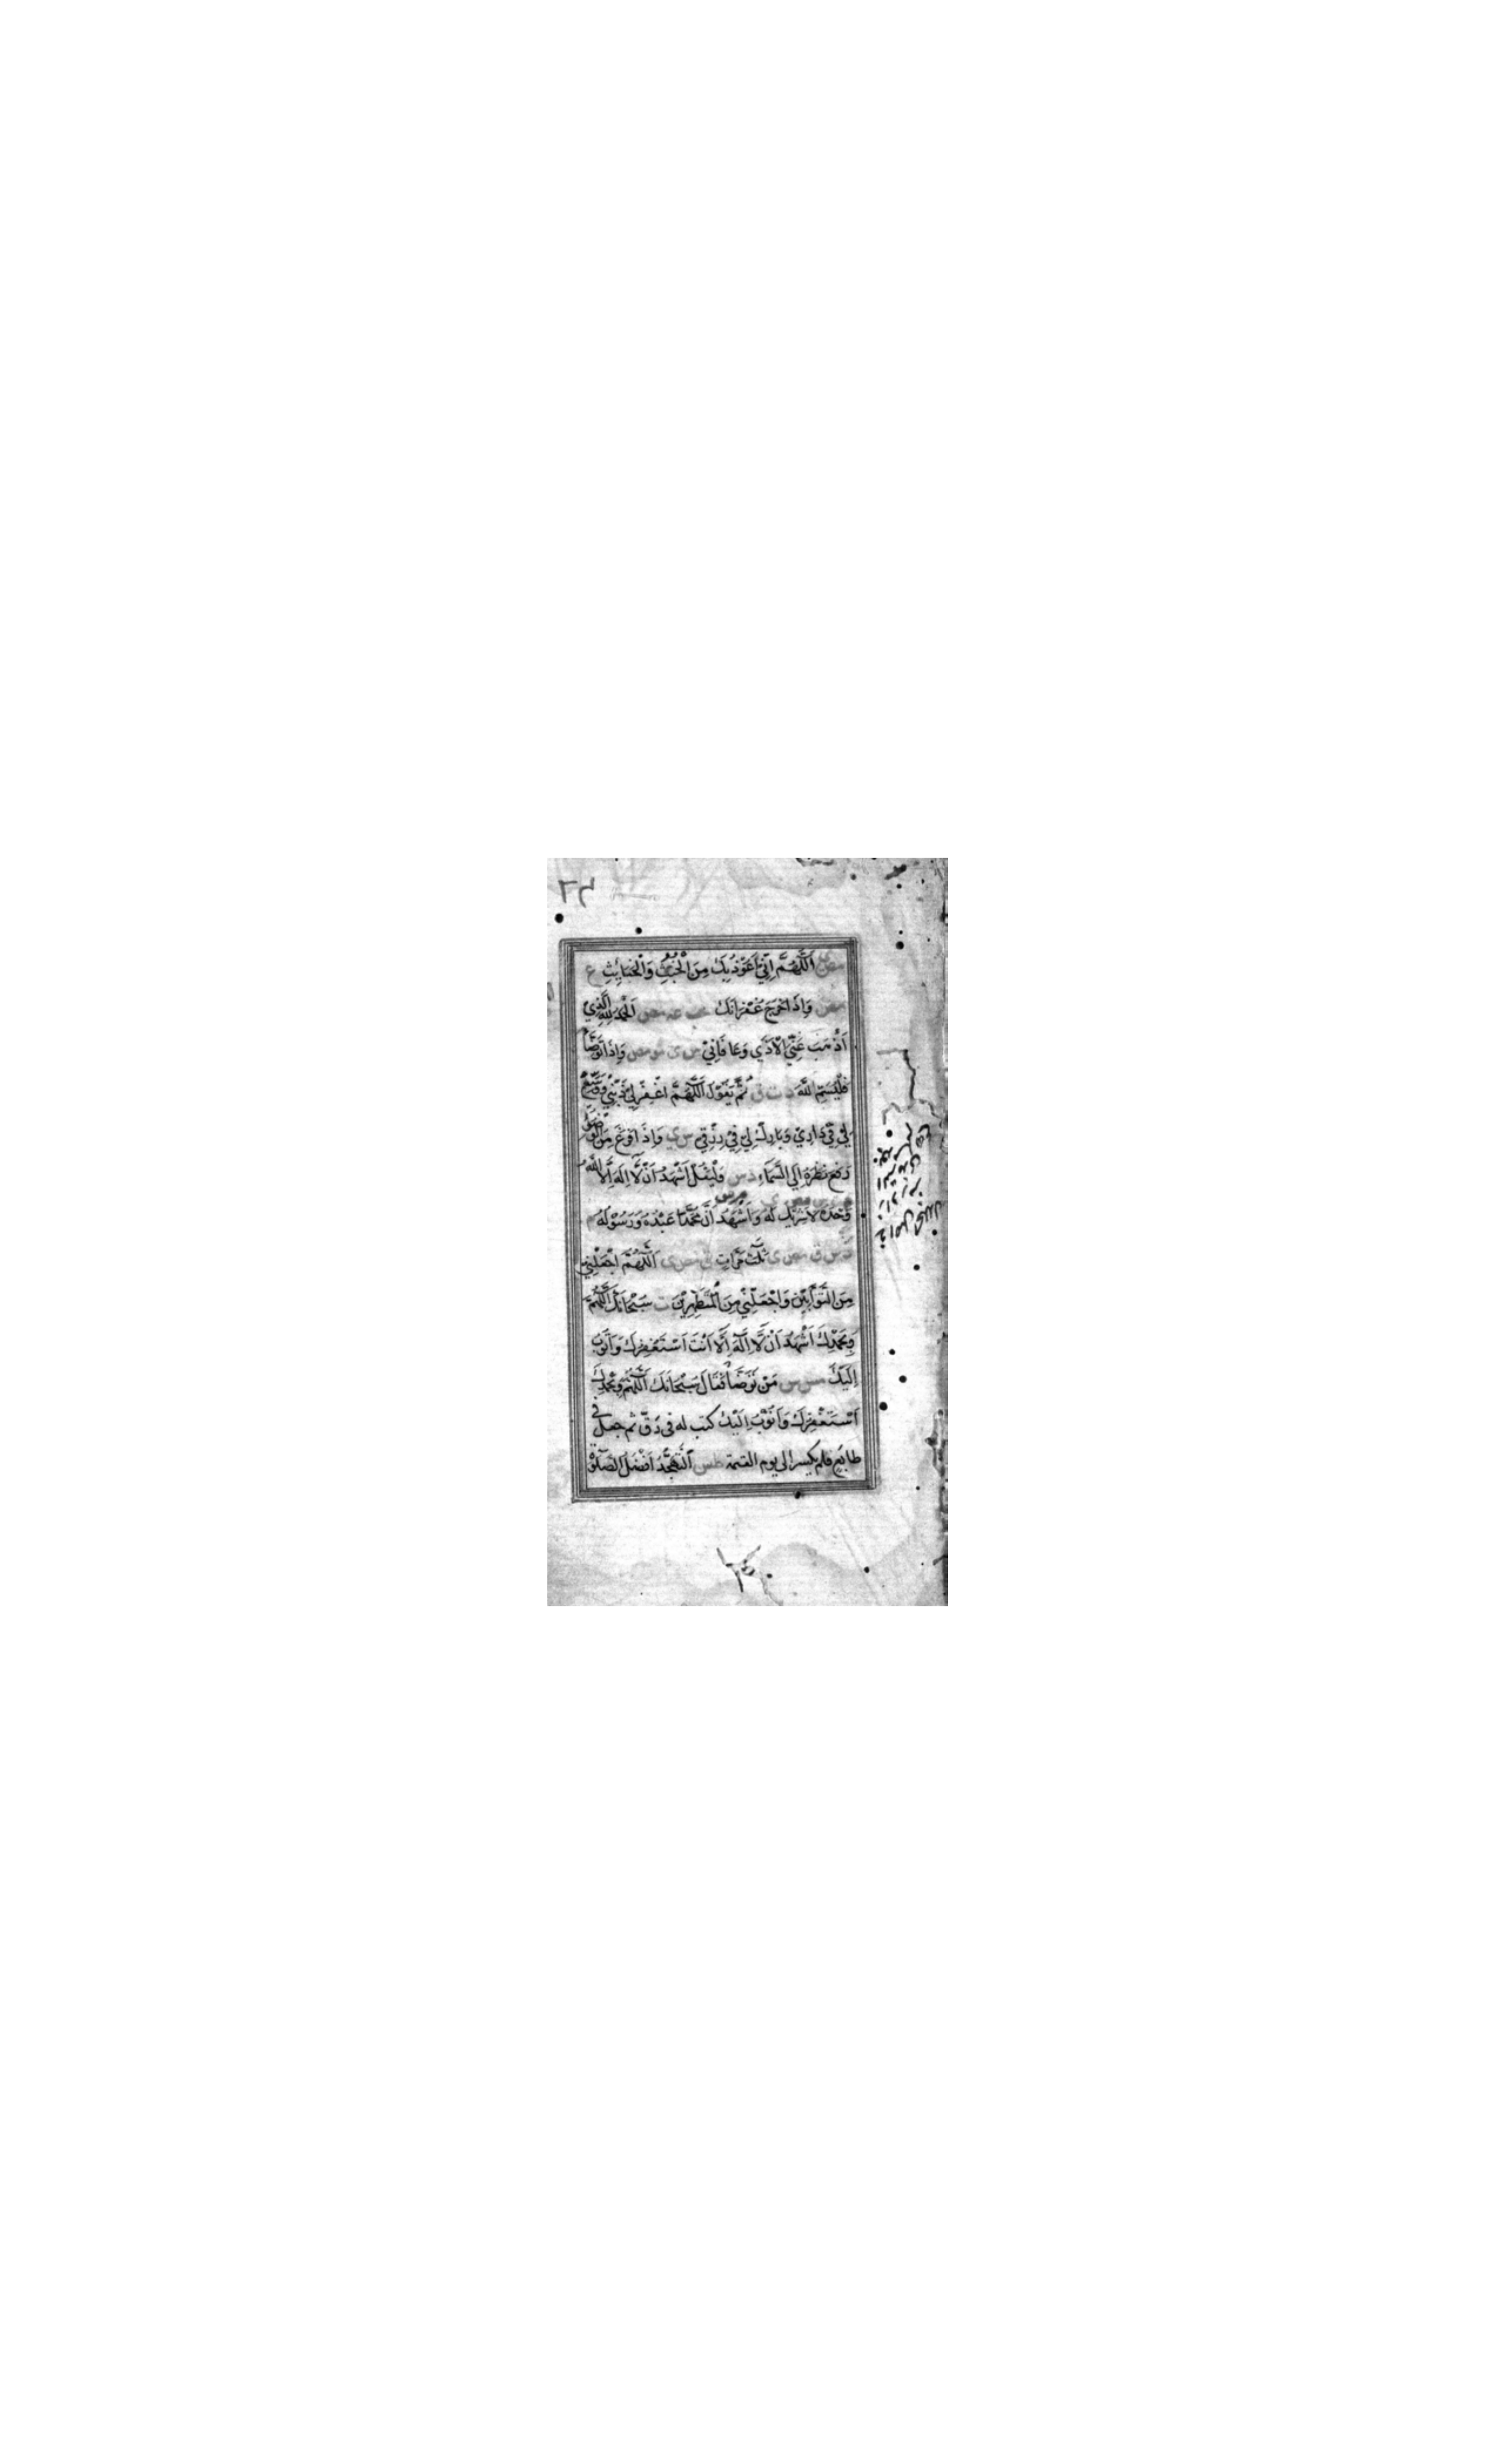 مص اَللّٰهُمَّ اِنِّيْ اَعُوْذُ بِكَ مِنَ الْخُبُثِ وَالْخَبَائِثِ ع
مص وَاِذَا خَرَجَ غُفْرَانَكَ حب عه مص اَلْحَمْدُ لِلّٰهِ الَّذِي
اَذْهَبَ عَنِّي الْاَذٰي وَعَافَانِيْ س ي مو مص وَاِذَا تَوَضَّأَ
فَلْيُسَمِّ اللّٰهَ د ت ق ثُمَّ يَقُوْلُ اَللّٰهُمَّ اغْفِرْ لِيْ ذَنْبِيْ وَوَسِّعْ
لِيْ فِيْ دَارِيْ وَبَارِكْ لِيْ فِيْ رِزْقِيْ س ي وَاِذَا فَرَغَ مِنَ الْوُضُوْءِ
رَفَعَ نَظَرَهٗ اِلَي السَّمَآءِ د س وَلْيَقُلْ اَشْهَدُ اَنْ لَّا اِلٰهَ اِلَّا اللّٰهُ
وَحْدَهٗ لَا شَرِيْكَ لَهٗ وَاَشْهَدُ اَنَّ مُحَمَّدًا عَبْدُهٗ وَرَسُوْلُهٗ م
د س ق مص ي ثَلٰثَ مَرَّاتٍ ق مص ي اَللّٰهُمَّ اجْعَلْنِيْ
مِنَ التَّوَّابِيْنَ وَاجْعَلْنِيْ مِنَ الْمُتَطَهِّرِيْنَ ت سُبْحَانَكَ اللّٰهُمَّ
وَبِحَمْدِكَ اَشْهَدُ اَنْ لَّا اِلٰهَ اِلَّا اَنْتَ اَسْتَغْفِرُكَ وَاَتُوْبُ
اِلَيْكَ مس س مَنْ تَوَضَّأَ فَقَالَ سُبْحَانَكَ اَللّٰهُمَّ وَبِحَمْدِكَ
اَسْتَغْفِرُكَ وَاَتُوْبُ اِلَيْكَ كتب له في رَقّ ثم جعل في
طابَع فلم يكسر الى يوم القيمة طس اَلتَّهَجُّدُ اَفْضَلُ الصَّلٰوةِ